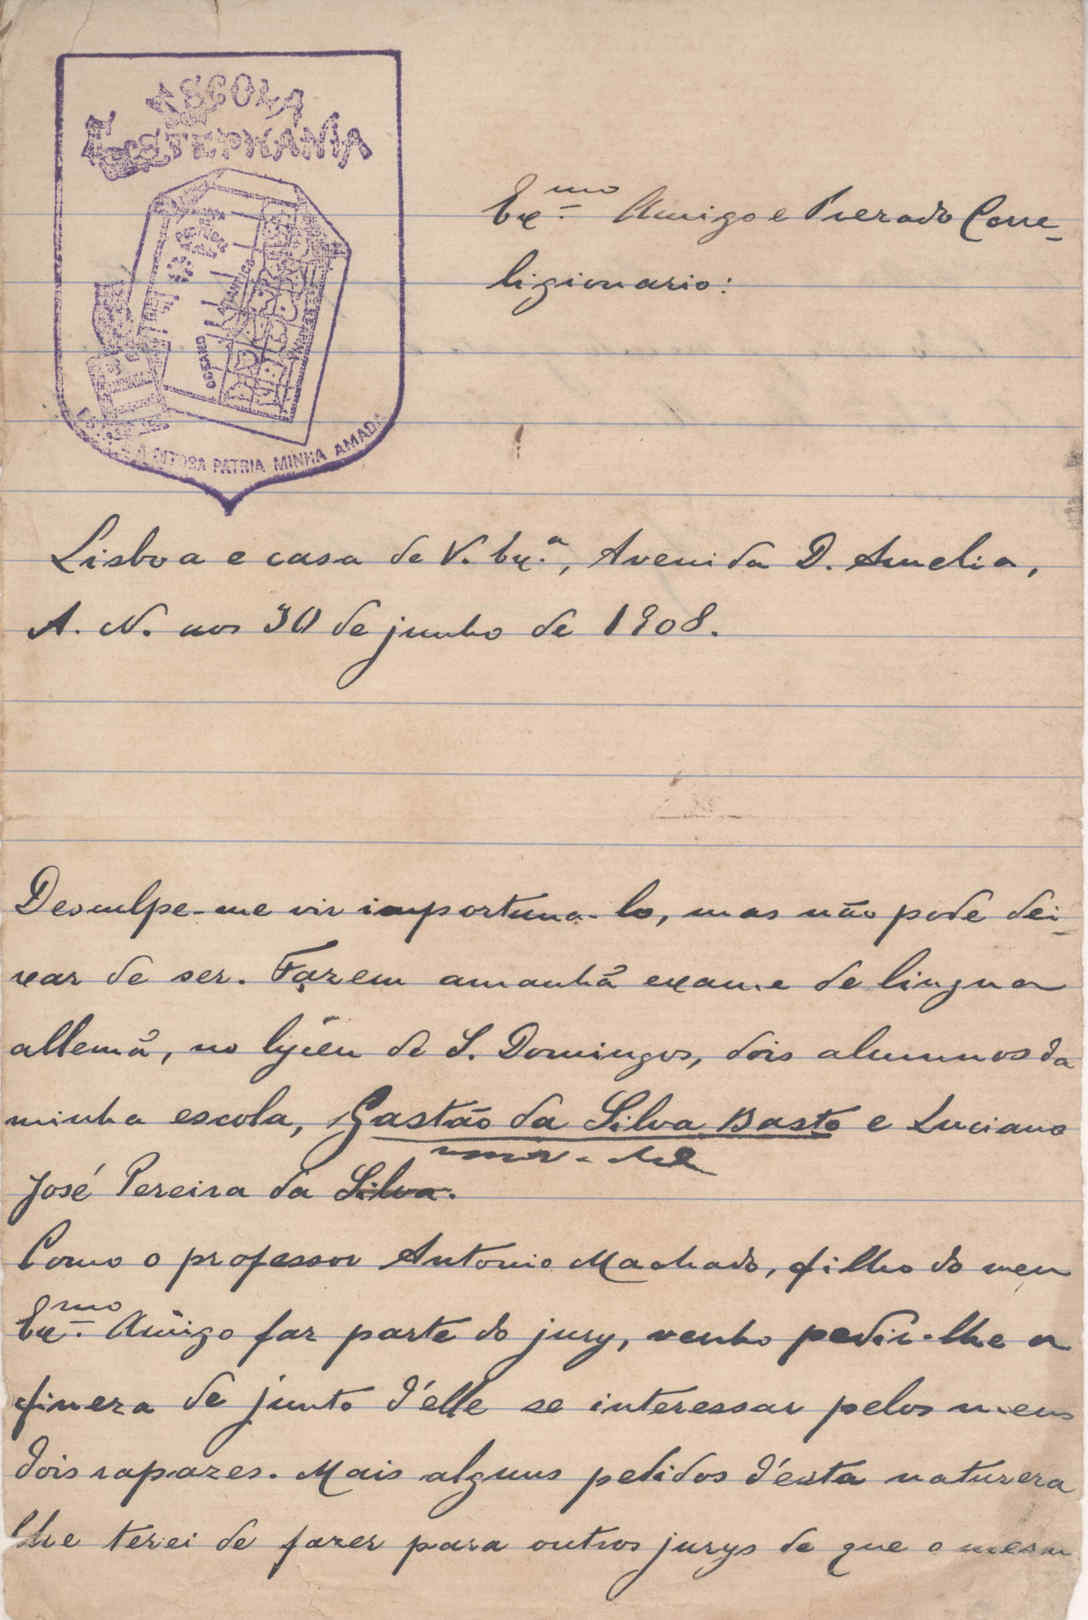 ESCOLA
ESTEPHANIA
DITOSA PATRIA MINHA AMADA
Ex.mo Amigo e Prezado Corre-
ligionario:
Lisboa e casa de V. Ex.a, Avenida D. Amelia,
A. N. aos 30 de junho de 1908.
Desculpe-me vir importuna-lo, mas não pode dei-
xar de ser. Fazem amanhã exame de lingua
allemã, no lyceu de S. Domingos, dois alumnos da
minha escola, Gastão da Silva Basto e Luciano
José Pereira da Silva.
Como o professor Antonio Machado, filho do meu
Ex.mo Amigo faz parte do jury, venho pedir-lhe a
fineza de junto d'elle se interessar pelos meus
dois rapazes. Mais alguns pedidos d'esta natureza
lhe terei de fazer para outros jurys de que o mesm